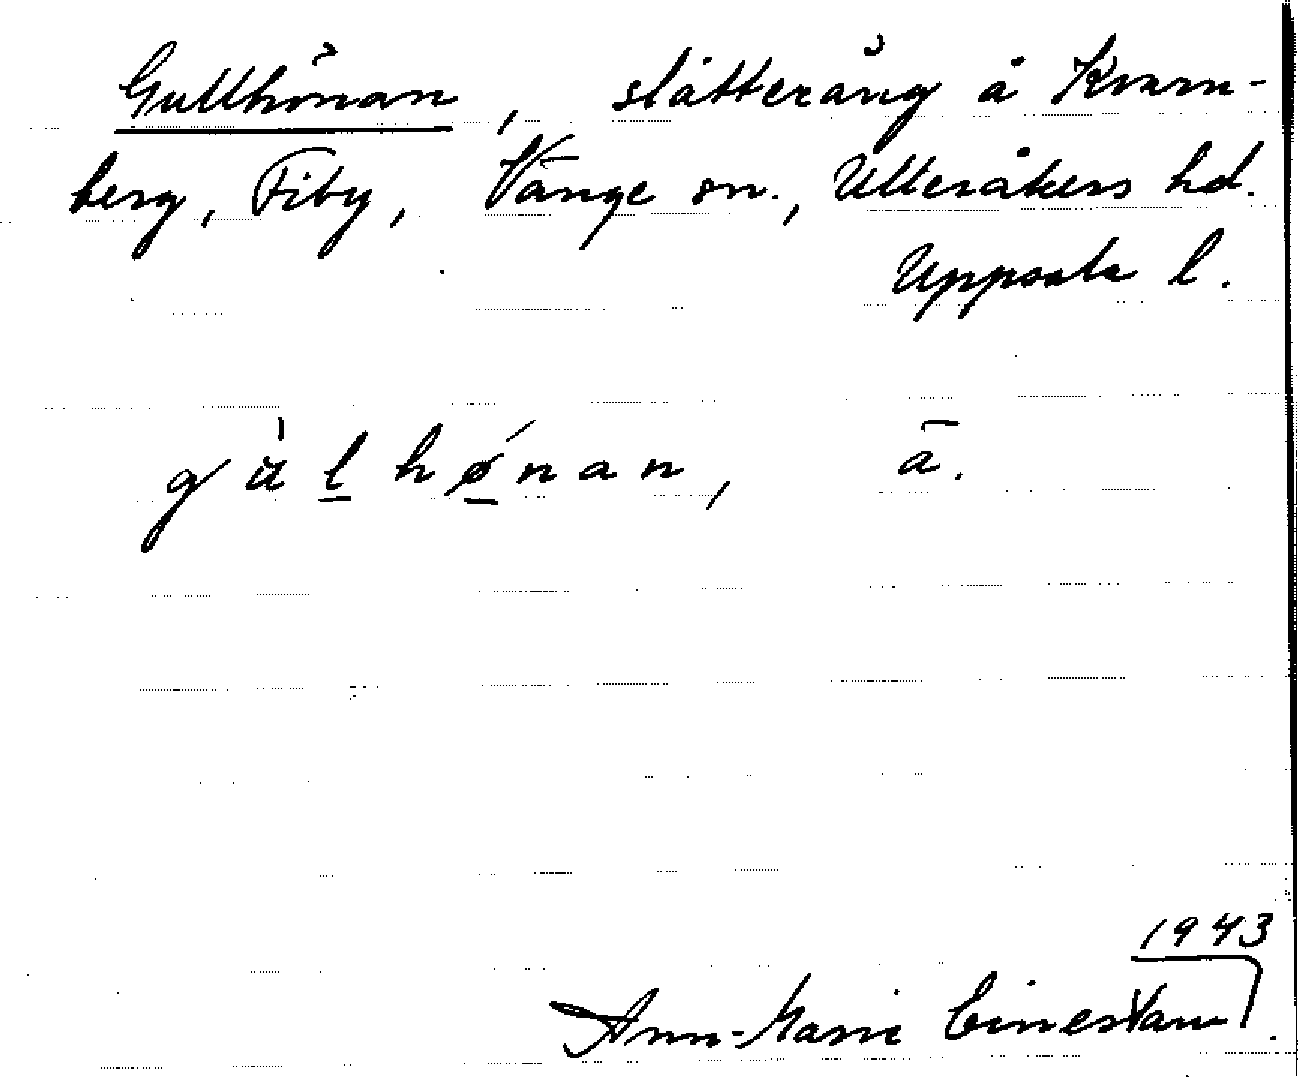 Gullhönan, slåtteräng å Kvarn-
berg, Fiby, Vänge sn., Ulleråkers hd.
Uppsala l.
gu̇l̲hǿ̲nan, ā.
1943
Ann-Marie